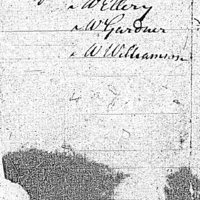 " W Ellery
" W Gardner
" W Williamson